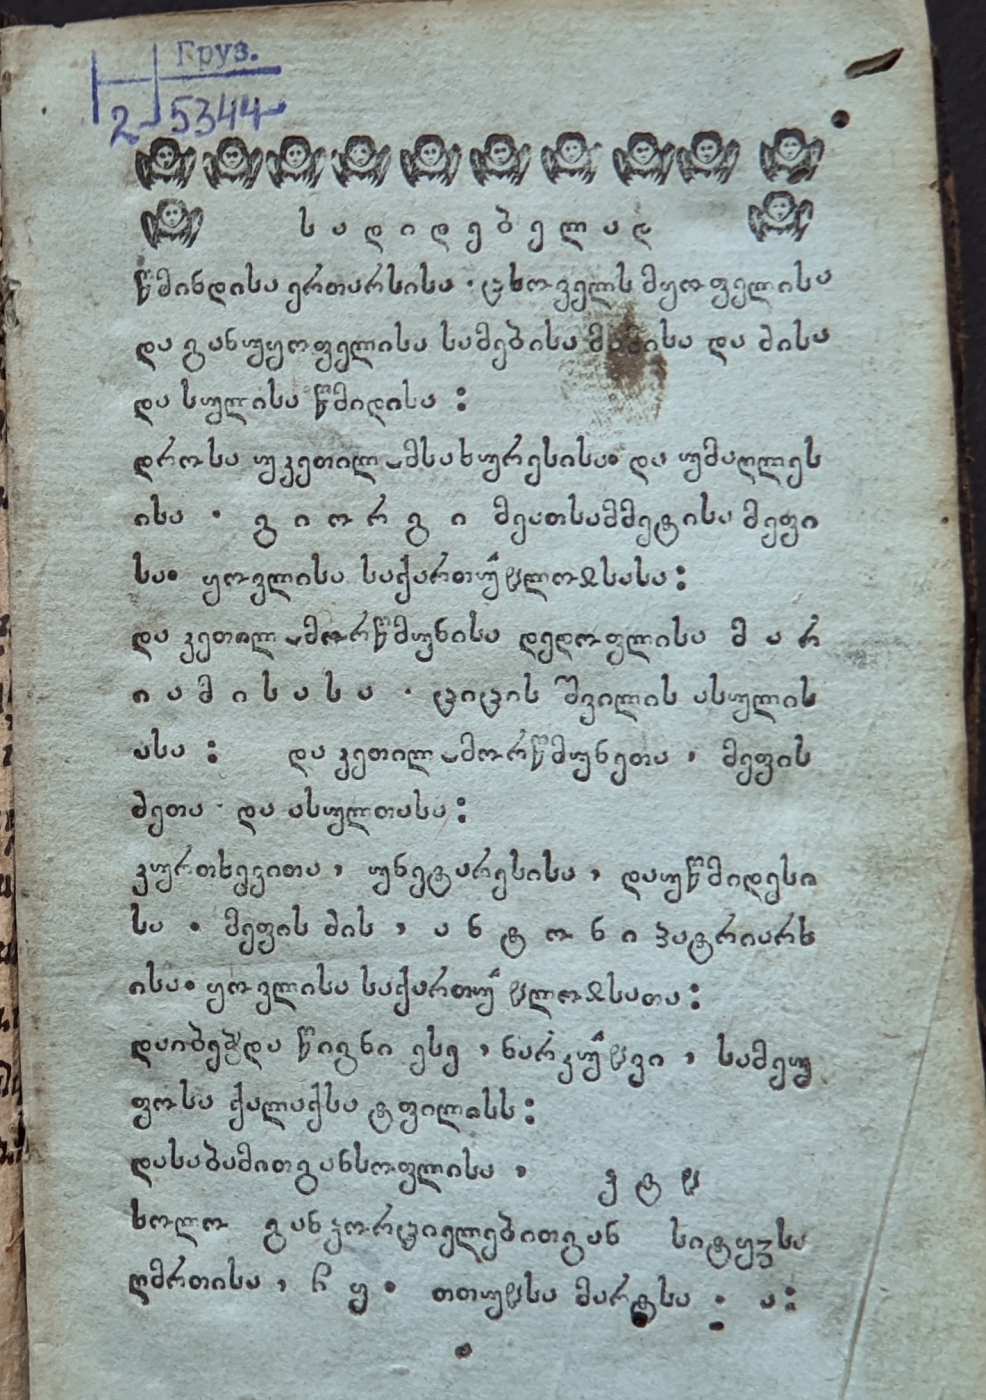 Груз.
2 5344
ს ა დ ი დ ე ბ ე ლ ა დ
წმინდისა ერთარსისა · ცხოველს მყოფელისა
და განუყოფელისა სამებისა მამისა და ძისა
და სულისა წმიდისა :
დროსა უკეთილ მსახურესისა· და უმაღლეს
ისა · გ ი ო რ გ ი მეათსამმეტისა მეფი
სა· ყოვლისა საქართუჱლოჲსასა :
და კეთილ მორწმუნისა დედოფლისა მ ა რ
ი ა მ ი ს ა ს ა · ციცის შვილის ასულის
ასა : და კეთილ მორწმუნეთა , მეფის
ძეთა · და ასულთასა :
კურთხევითა , უნეტარესისა , დაუწმიდესი
სა · მეფის ძის , ა ნ ტ ო ნ ი პატრიარხ
ისა· ყოვლისა საქართუჱლოჲსათა :
დაიბეჭდა წიგნი ესე , ნარკუჱვი , სამეუ
ფოსა ქალაქსა ტფილისს :
დასაბამითგანსოფლისა , ჳ ტ ჱ
ხოლო განჴორციელებითგან სიტყჳსა
ღმრთისა , ჩ ყ · თთუჱსა მარტსა : ა :